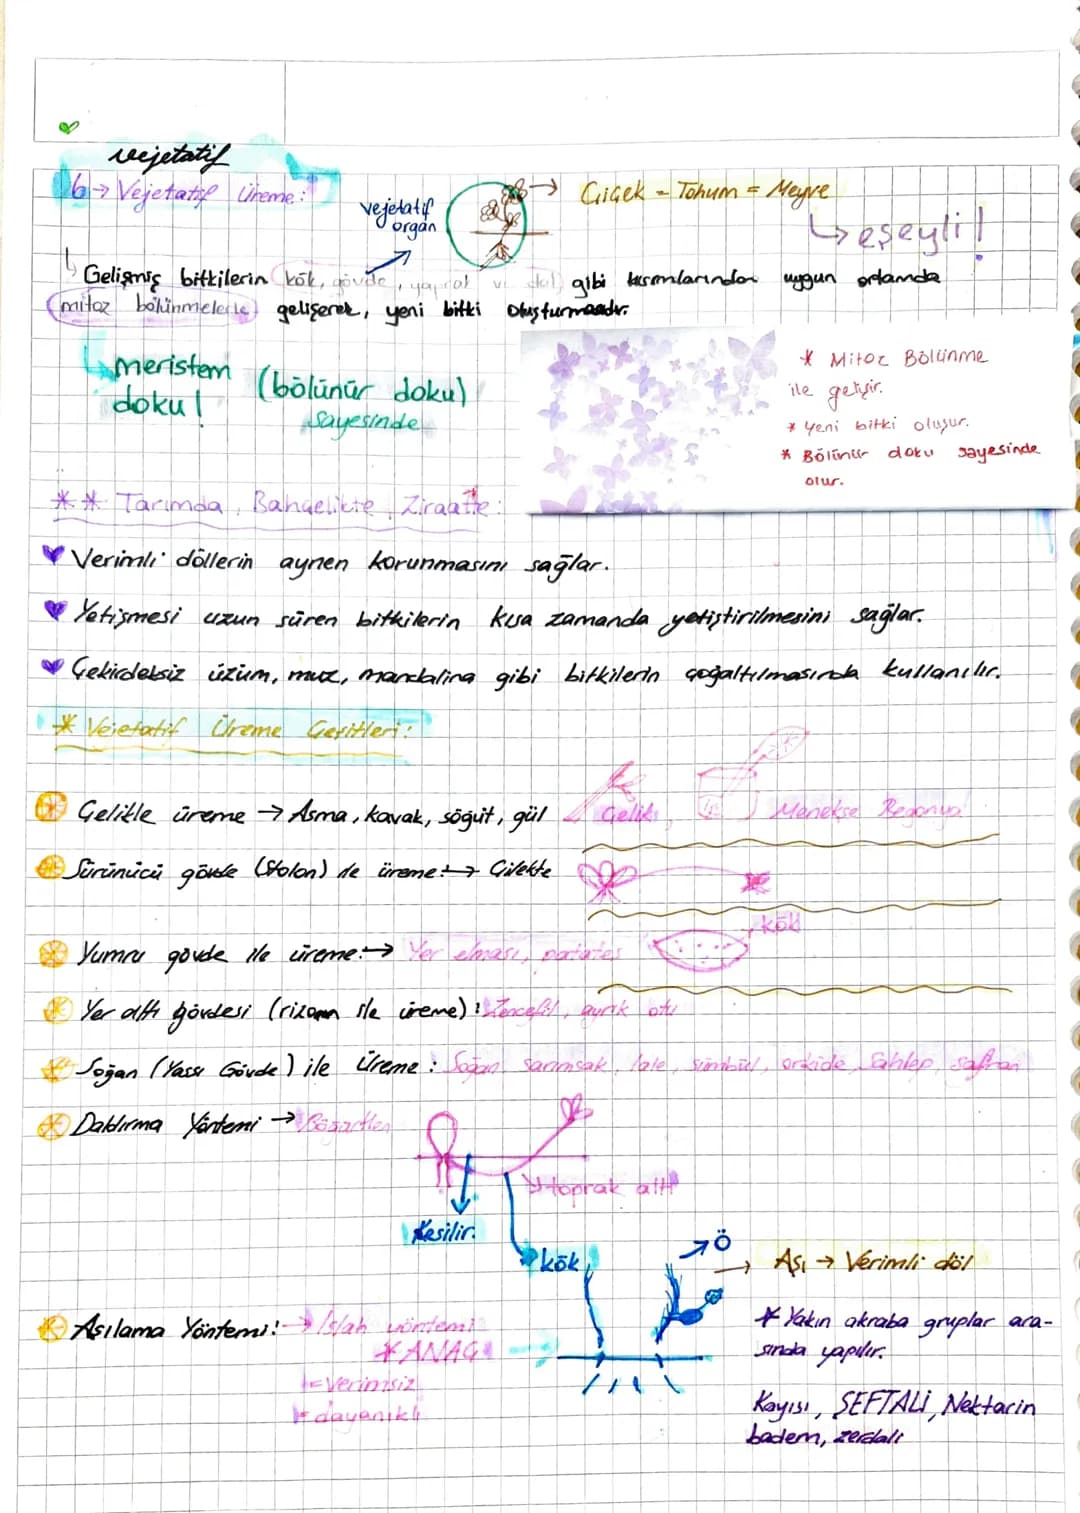 vejetatif
6→ Vejetatif Üreme:
vejetatif
organ
Çiçek - Tohum = Meyve
↳ eşeyli!
↳ Gelişmiş bitkilerin kök, gövde, yaprak ve dal gibi kısımlarından uygun ortamda
(mitoz bölünmelerle) gelişerek, yeni bitki oluşturmasıdır.
↳ meristem (bölünür doku)
doku! sayesinde
* Mitoz Bölünme
ile gelişir.
* Yeni bitki oluşur.
* Bölünür doku sayesinde
olur.
** Tarımda, Bahçelikte, Ziraatte:
Verimli döllerin aynen korunmasını sağlar.
Yetişmesi uzun süren bitkilerin kısa zamanda yetiştirilmesini sağlar.
Çekirdeksiz üzüm, muz, mandalina gibi bitkilerin çoğaltılmasında kullanılır.
* Vejetatif Üreme Çeşitleri:
Çelikle üreme → Asma, kavak, söğüt, gül
Çelik, Menekşe Begonya
Sürünücü gövde (Stolon) ile üreme: → Çilekte
Yumru gövde ile üreme: → Yer elması, patates
kök
Yer altı gövdesi (rizom ile üreme): Zencefil, ayrık otu
Soğan (Yassı Gövde) ile Üreme: Soğan, sarımsak, lale, sümbül, orkide, Sahlep, safran
Daldırma Yöntemi → Böğürtlen
toprak altı
Kesilir.
kök
→ Ö
→ Aşı → Verimli döl
Aşılama Yöntemi: → Islah yöntemi
* ANAÇ
Verimsiz
dayanıklı
* Yakın akraba gruplar ara-
sında yapılır.
Kayısı, ŞEFTALİ, Nektarin
badem, zerdali